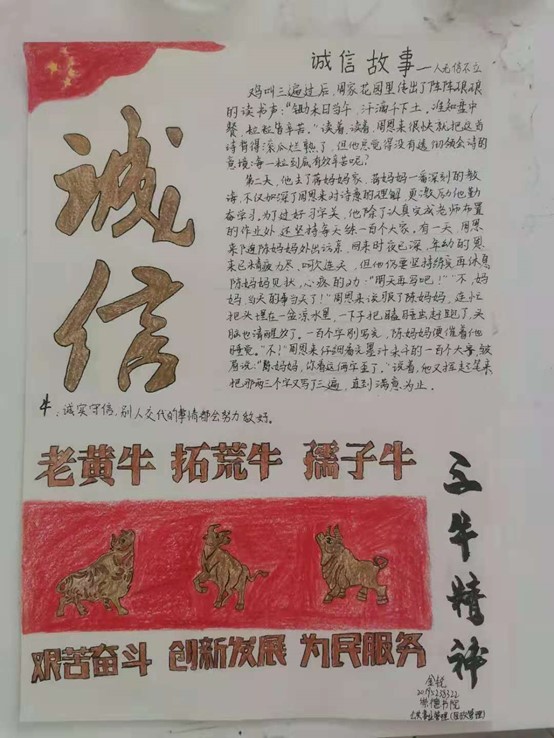 诚信
诚信故事—人无信不立
鸡叫三遍过后，周家花园里传出了阵阵琅琅
的读书声：“锄禾日当午，汗滴禾下土。谁知盘中
餐，粒粒皆辛苦。”读着，读着，周恩来很快就把这首
诗背得滚瓜烂熟了，但他总觉得没有透彻领会诗的
意境：每一粒到底有多辛苦呢？
第二天，他去了蒋妈妈家，蒋妈妈一番深刻的教
诲，不仅加深了周恩来对诗意的理解，更激励他勤
奋学习。为过好习字关，他除了认真完成老师布置
的作业外，还坚持每天练一百个大字。有一天，周恩
来随陈妈妈外出访亲，回来时夜已深，年幼的恩
来已精疲力尽、呵欠连天，但他仍要坚持练完再休息
陈妈妈见状，心疼的劝：“明天再写吧！”“不，妈
妈，当天的事当天了！”周恩来说服了陈妈妈，连忙
把头埋在一盆凉水里，一下子把瞌睡虫赶跑了，头
脑也清醒多了。一百个字刚写完，陈妈妈便催着他
睡觉。“不！”周恩来仔细看完墨汁未干的一百个大字，皱
眉说：“陈妈妈，你看这两字歪了。”说着，他又挥起笔来
把那两三个字又写了三遍，直到满意为止。
牛：诚实守信，别人交代的事情都会努力做好。
老黄牛 拓荒牛 孺子牛
艰苦奋斗 创新发展 为民服务
三牛精神
崇德书院